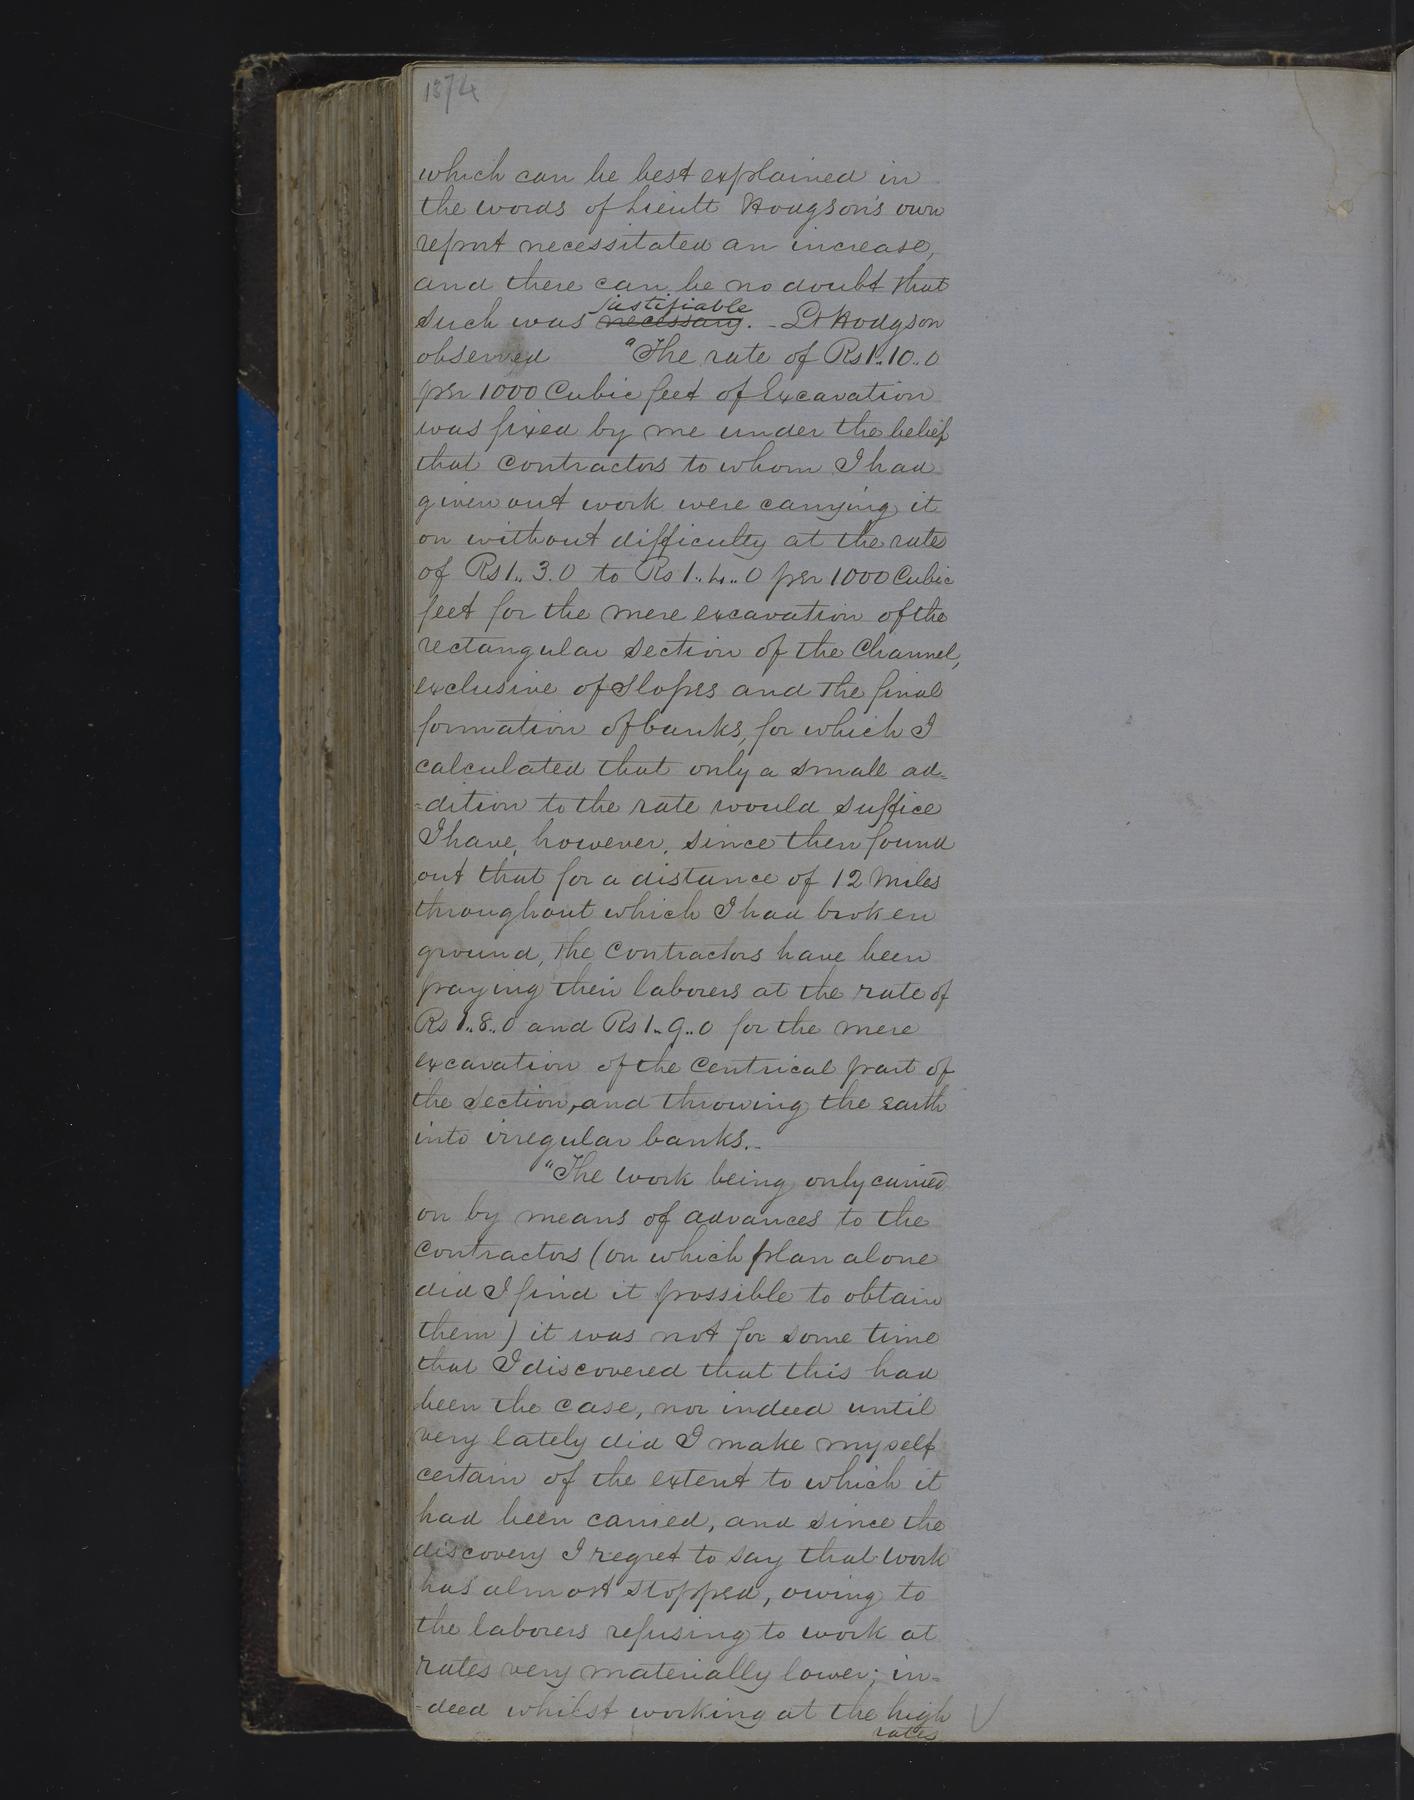 1874
which can be best explained in
the words of Lieutt Hodgson's own
report necessitated an increase,
and there can be no doubt that
justifiable
such was necessary. - Lt Hodgson
observed "The rate of Rs 1..10..0
per 1000 Cubic feet of Excavation
was fixed by me under the belief
that Contractors to whom I had
given out work were carrying it
on without difficulty at the rates
of Rs 1..3.0 to Rs 1..4..0 per 1000 Cubic
feet for the mere excavation of the
rectangular section of the Channel,
exclusive of Slopes and the final
formation of banks, for which I
calculated that only a small ad=
=dition to the rate would suffice
I have, however, since then found
out that for a distance of 12 Miles
throughout which I had broken
ground, the Contractors have been
paying their laborers at the rate of
Rs 1..8..0 and Rs 1..9..0 for the mere
excavation of the Centrical part of
the Section, and throwing the earth
into irregular banks..
"The work being only carried
on by means of advances to the
Contractors (on which plan alone
did I find it possible to obtain
them) it was not for some time
that I discovered that this had
been the case, nor indeed until
very lately did I make myself
certain of the extent to which it
had been carried, and since the
discovery I regret to say that work
has almost stopped, owing to
the laborers refusing to work at
rates very materially lower; in=
=deed whilst working at the high
rates